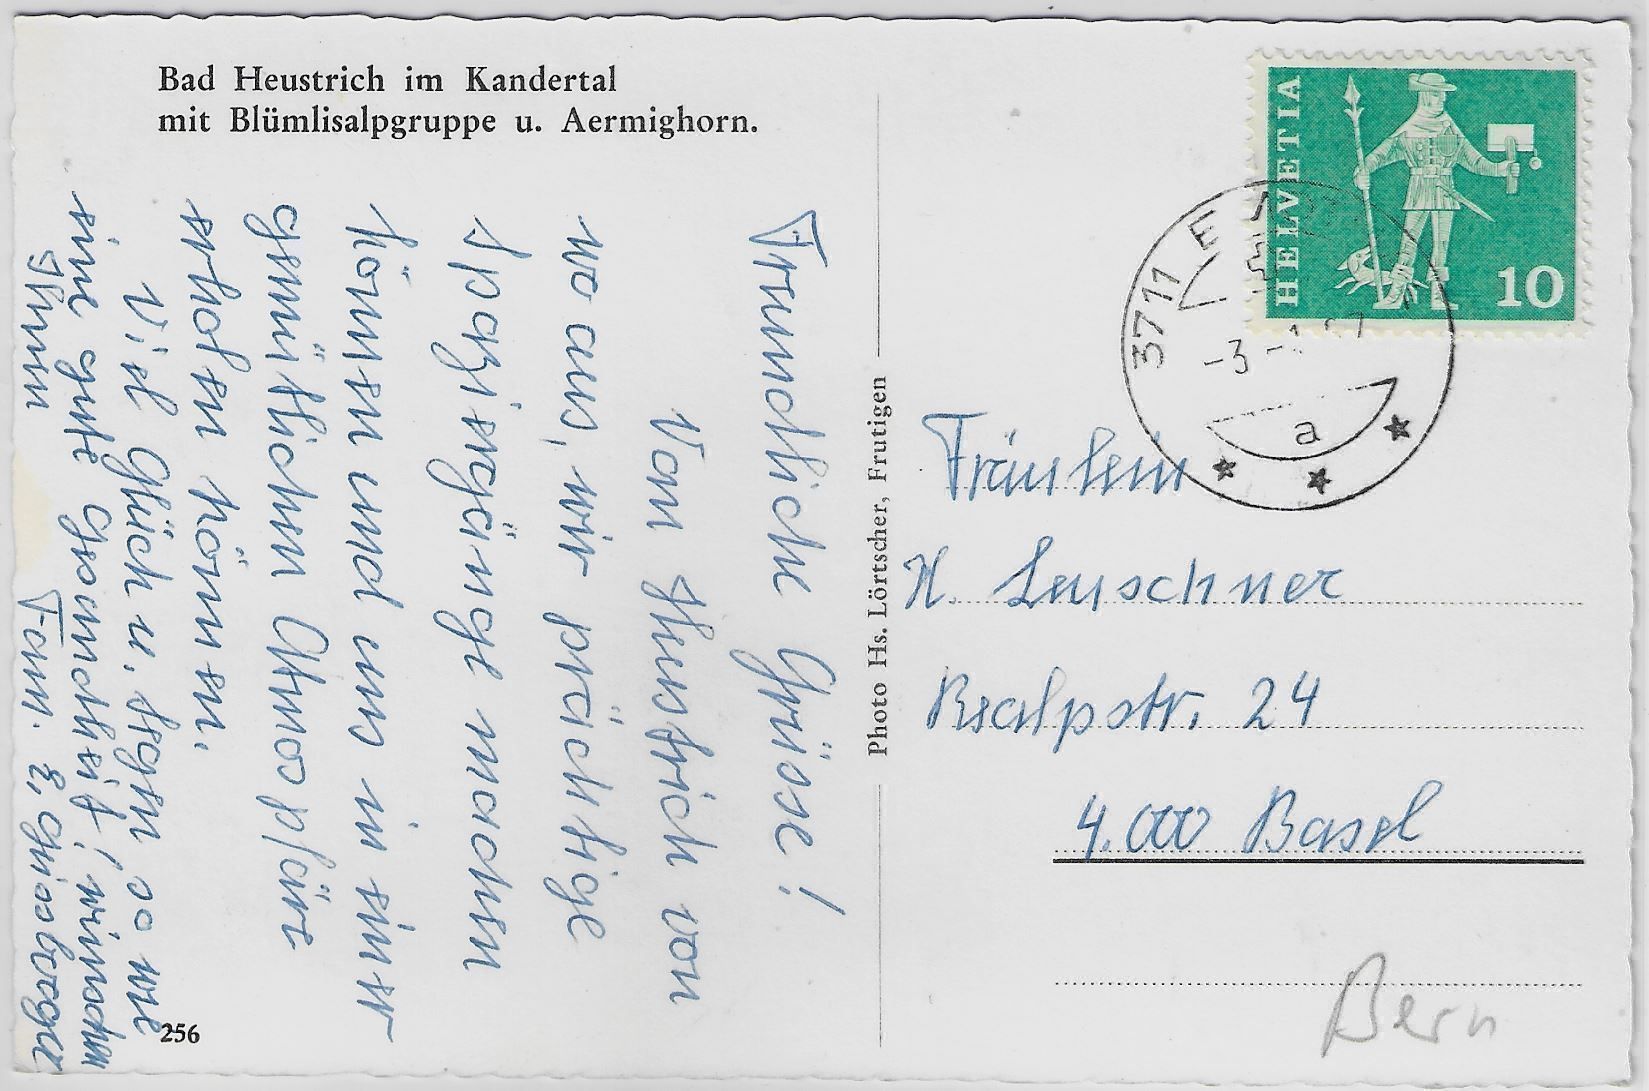 Bad Heustrich im Kandertal
mit Blümlisalpgruppe u. Aermighorn.
Freundliche Grüse!
Vom Heustrich von
wo aus, wir prächtige
Spaziergänge machen
können und uns in einer
gemütlichen Atmospfäre
erholen können.
Viel Glück u. Segen so wie
eine gute Gesundheit! wünschen
Ihnen Fam. E. Grossberger
256
Photo Hs. Lörtscher, Frutigen
HELVETIA
10
3711 E
-3 -
a
Fräulein
H. Leuschner
Realpstr. 24
4.000 Basel
Bern